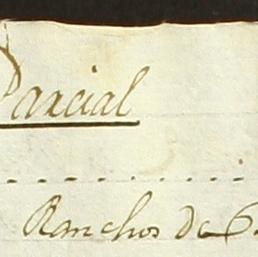 Parcial
Ranchos de